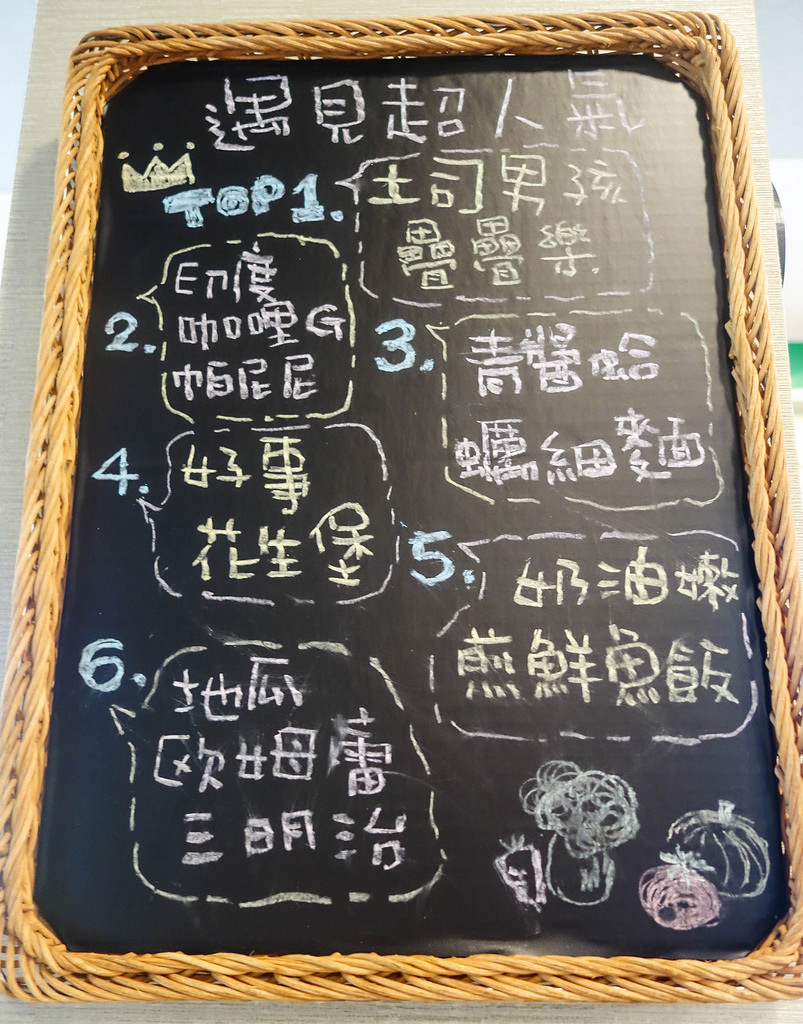 遇見超人氣
TOP1.
土司男孩
疊疊樂
2.
印度
咖哩G
帕尼尼
3.
青醬蛤
蠣細麵
4.
好事
花生堡
5.
奶油嫩
煎鮮魚飯
6.
地瓜
歐姆蕾
三明治